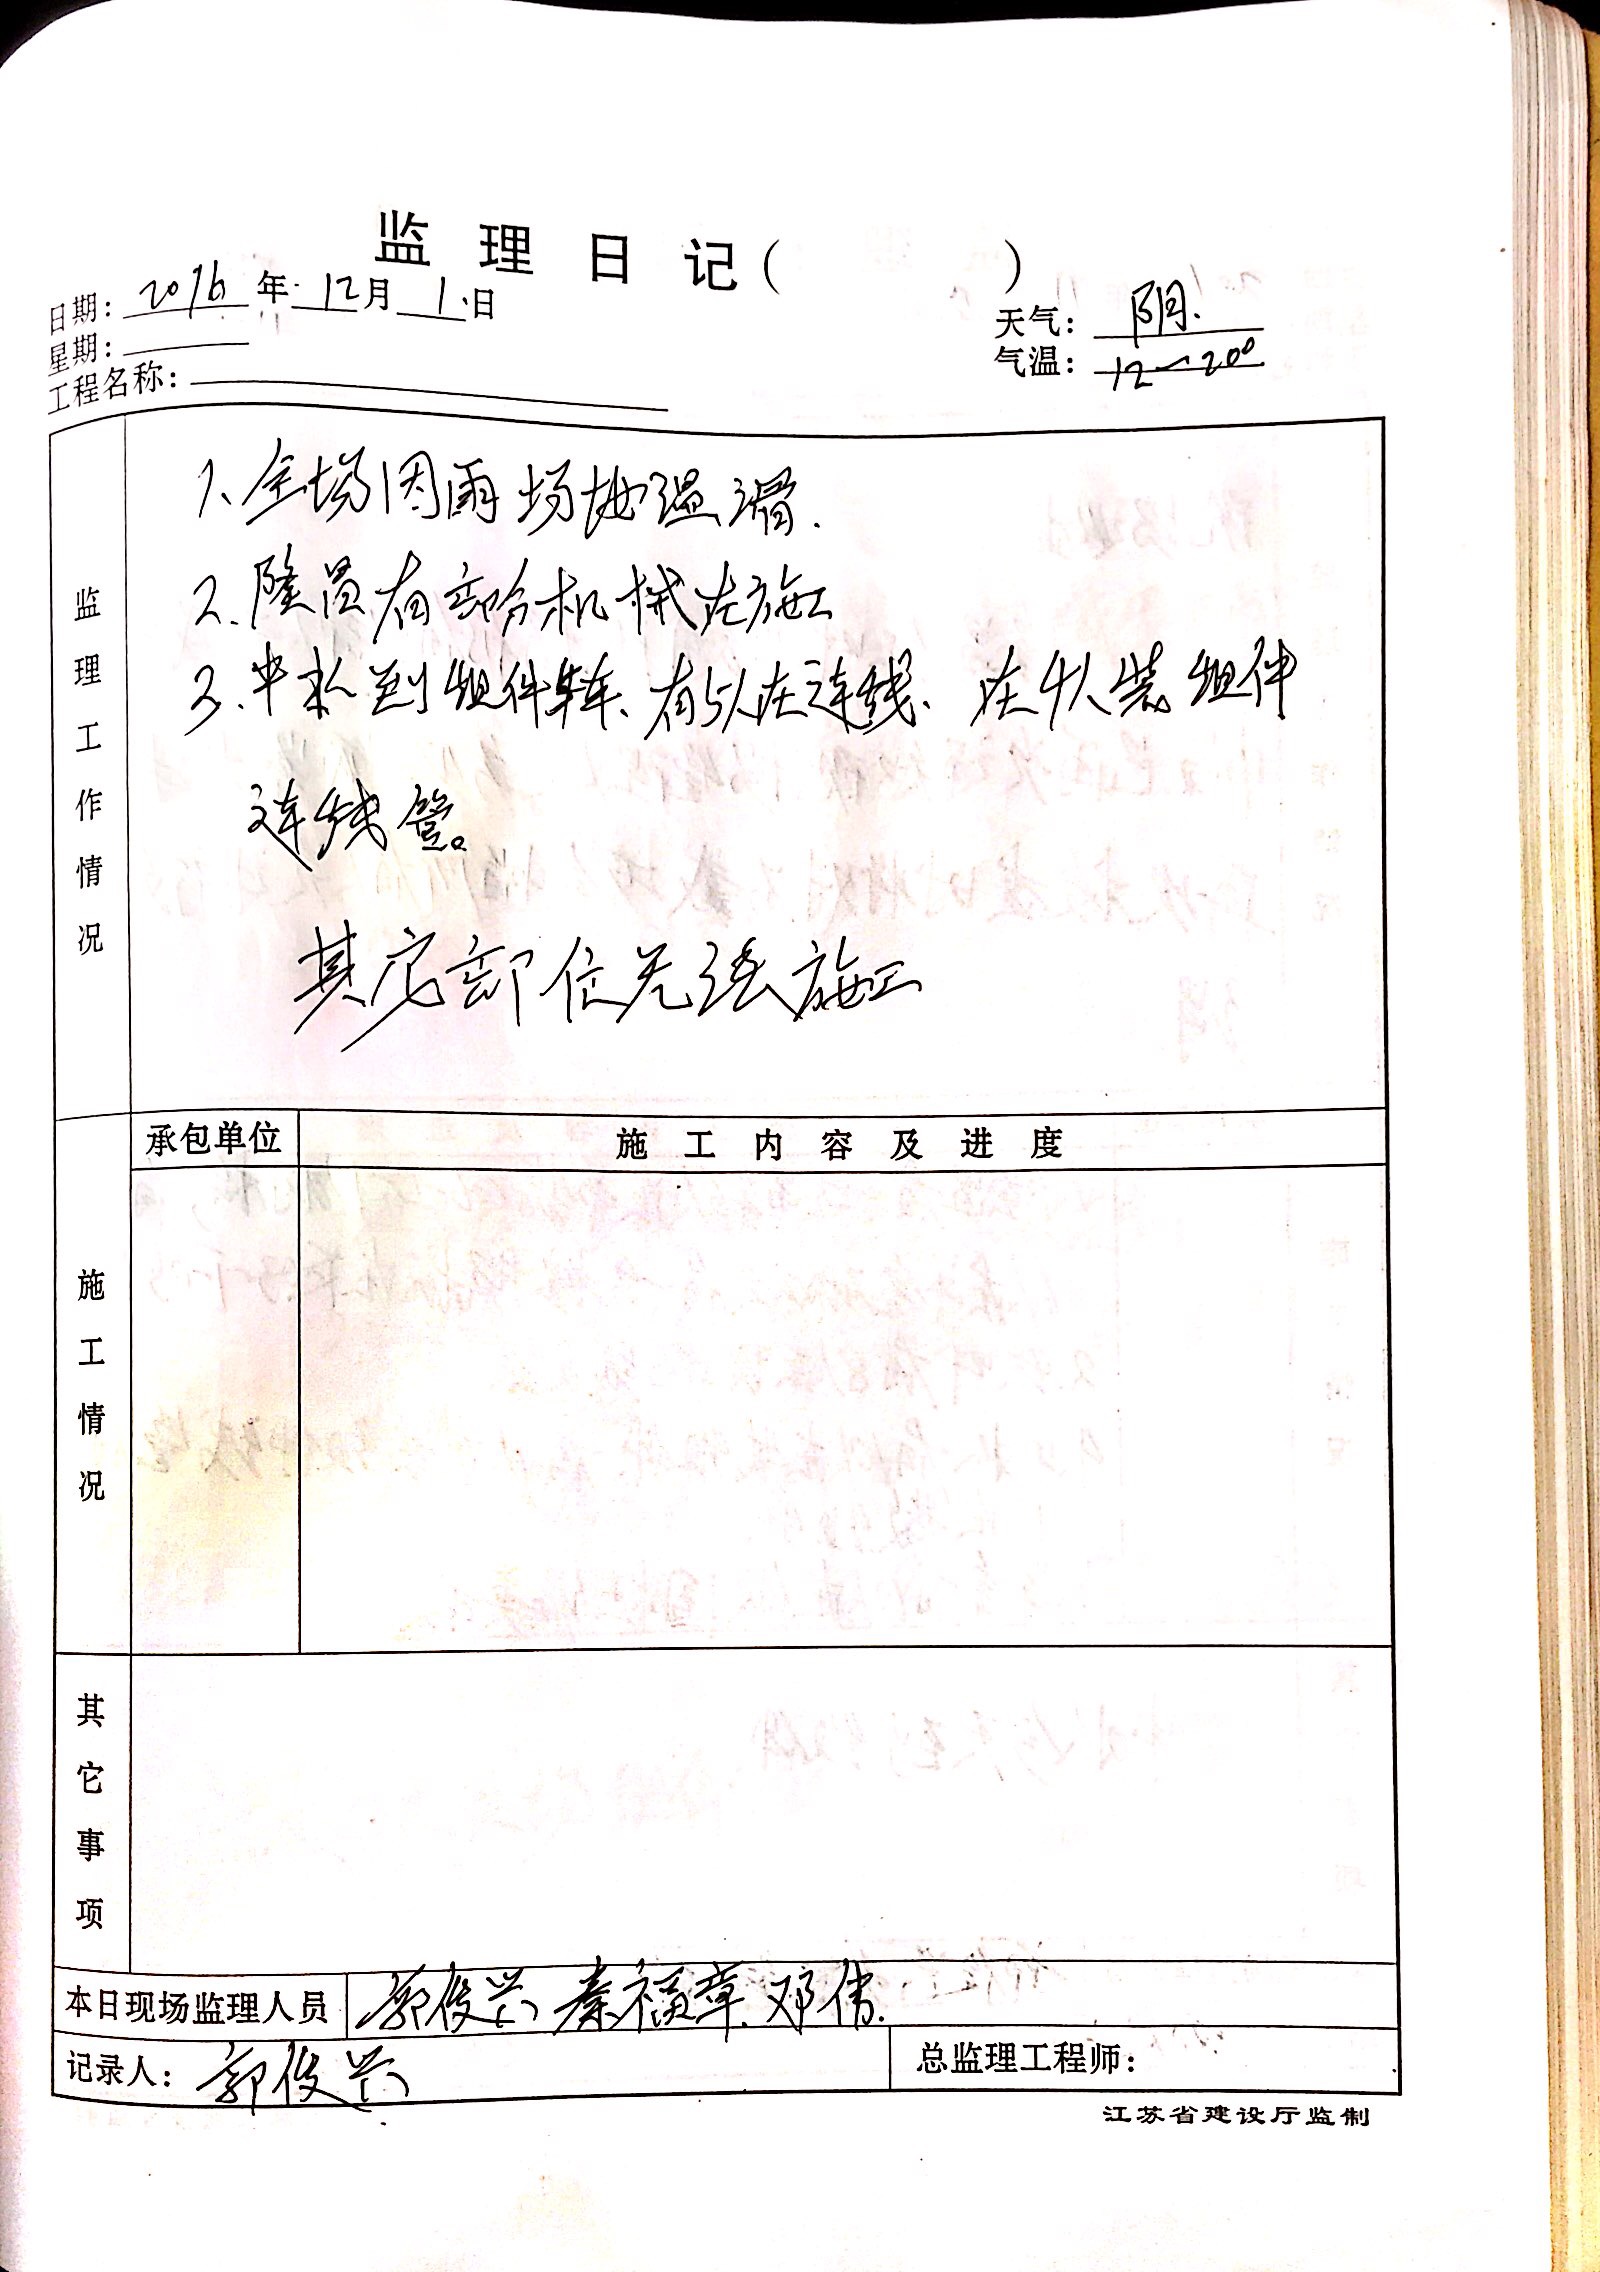 监理日记( )
日期: 2016 年 12 月 1 日
天气: 阴.
星期:
气温: 12～20°
工程名称:
监理工作情况
1、全场因雨场地湿滑.
2、隆昌有部份机械在施工
3、中水到组件车、有5人在连线、在4人装组件
连线管。
其它部位无法施工
承包单位 施工内容及进度
施工情况
其它事项
本日现场监理人员 郭俊兴 秦福章 邓伟.
记录人: 郭俊兴 总监理工程师:
江苏省建设厅监制